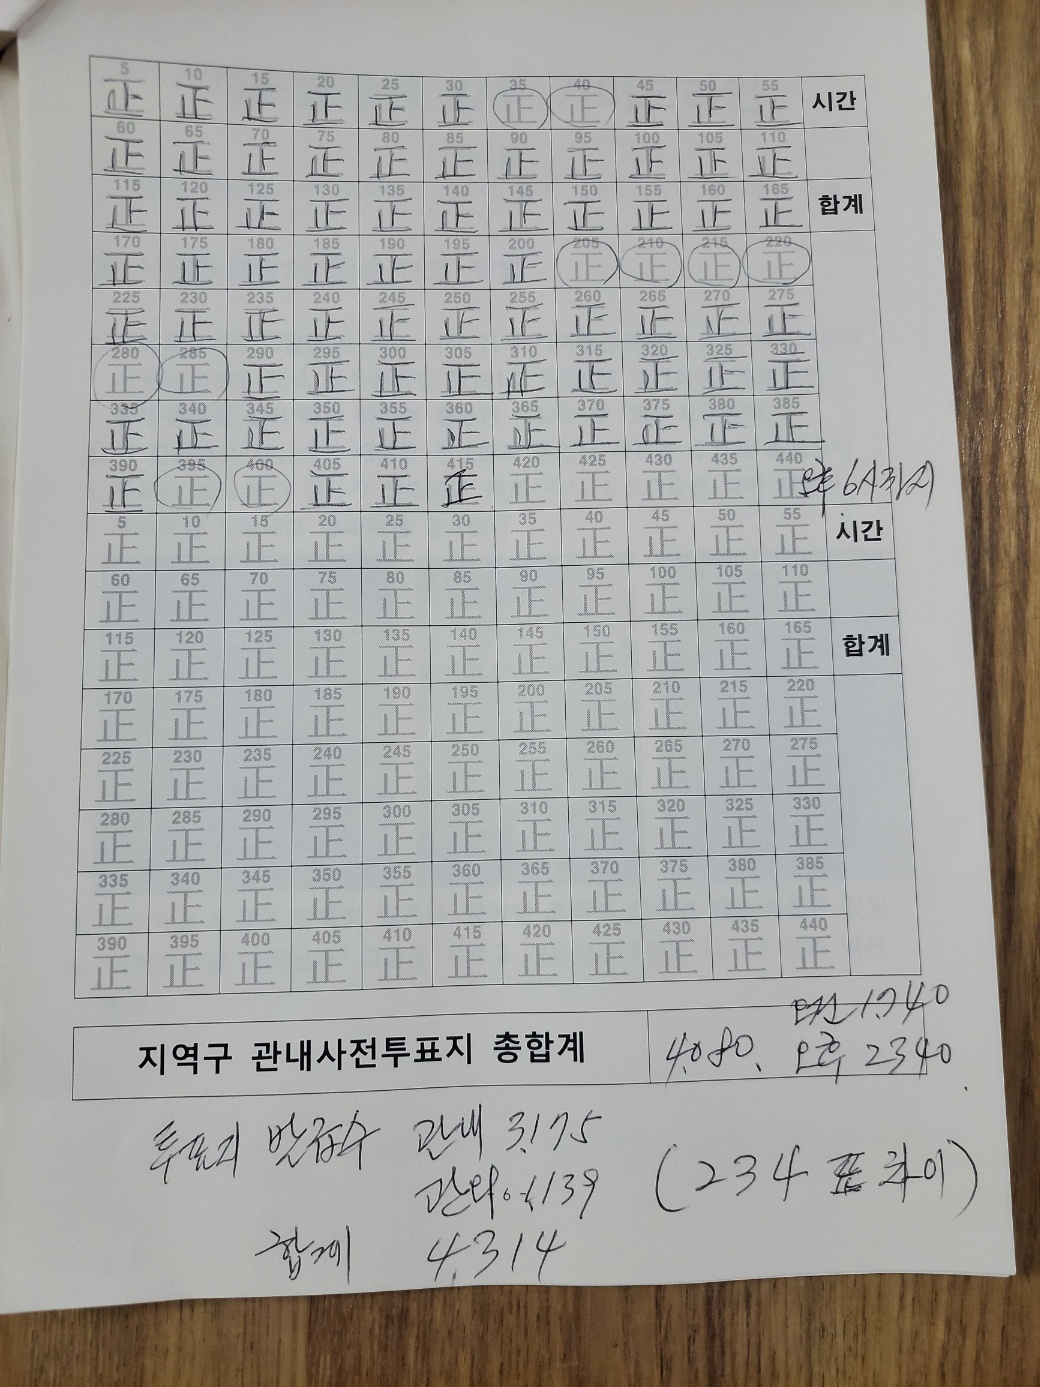 5 10 15 20 25 30 35 40 45 50 55
正 正 正 正 正 正 正 正 正 正 正 시간
60 65 70 75 80 85 90 95 100 105 110
正 正 正 正 正 正 正 正 正 正 正
115 120 125 130 135 140 145 150 155 160 165
正 正 正 正 正 正 正 正 正 正 正 합계
170 175 180 185 190 195 200 205 210 215 220
正 正 正 正 正 正 正 正 正 正 正
225 230 235 240 245 250 255 260 265 270 275
正 正 正 正 正 正 正 正 正 正 正
280 285 290 295 300 305 310 315 320 325 330
正 正 正 正 正 正 正 正 正 正 正
335 340 345 350 355 360 365 370 375 380 385
正 正 正 正 正 正 正 正 正 正 正
390 395 400 405 410 415 420 425 430 435 440
正 正 正 正 正 正 正 正 正 正 正 오후 6시까지
5 10 15 20 25 30 35 40 45 50 55 시간
正 正 正 正 正 正 正 正 正 正 正
60 65 70 75 80 85 90 95 100 105 110
正 正 正 正 正 正 正 正 正 正 正
115 120 125 130 135 140 145 150 155 160 165
正 正 正 正 正 正 正 正 正 正 正 합계
170 175 180 185 190 195 200 205 210 215 220
正 正 正 正 正 正 正 正 正 正 正
225 230 235 240 245 250 255 260 265 270 275
正 正 正 正 正 正 正 正 正 正 正
280 285 290 295 300 305 310 315 320 325 330
正 正 正 正 正 正 正 正 正 正 正
335 340 345 350 355 360 365 370 375 380 385
正 正 正 正 正 正 正 正 正 正 正
390 395 400 405 410 415 420 425 430 435 440
正 正 正 正 正 正 正 正 正 正 正
오전 1.740
지역구 관내사전투표지 총합계 4.080. 오후 2340.
투표지 발급수 관내 3.175
관외 1.139 (234 표 차이)
합계 4.314